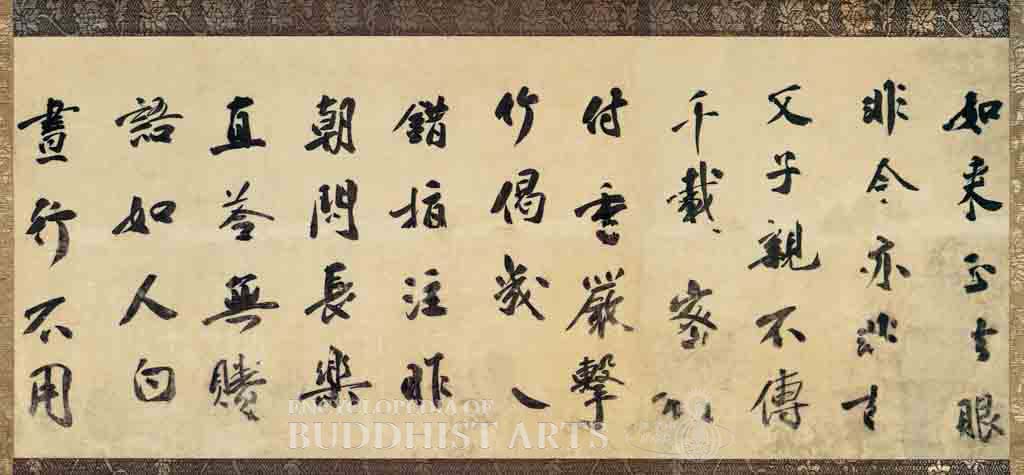 如来正法眼
非今亦非古
父子親不傳
千載密相
付香嚴擊
竹偈幾人
錯指注昨
朝問長樂
直答無賸
語如人白
晝行不用
ENCYCLOPEDIA OF
BUDDHIST ARTS